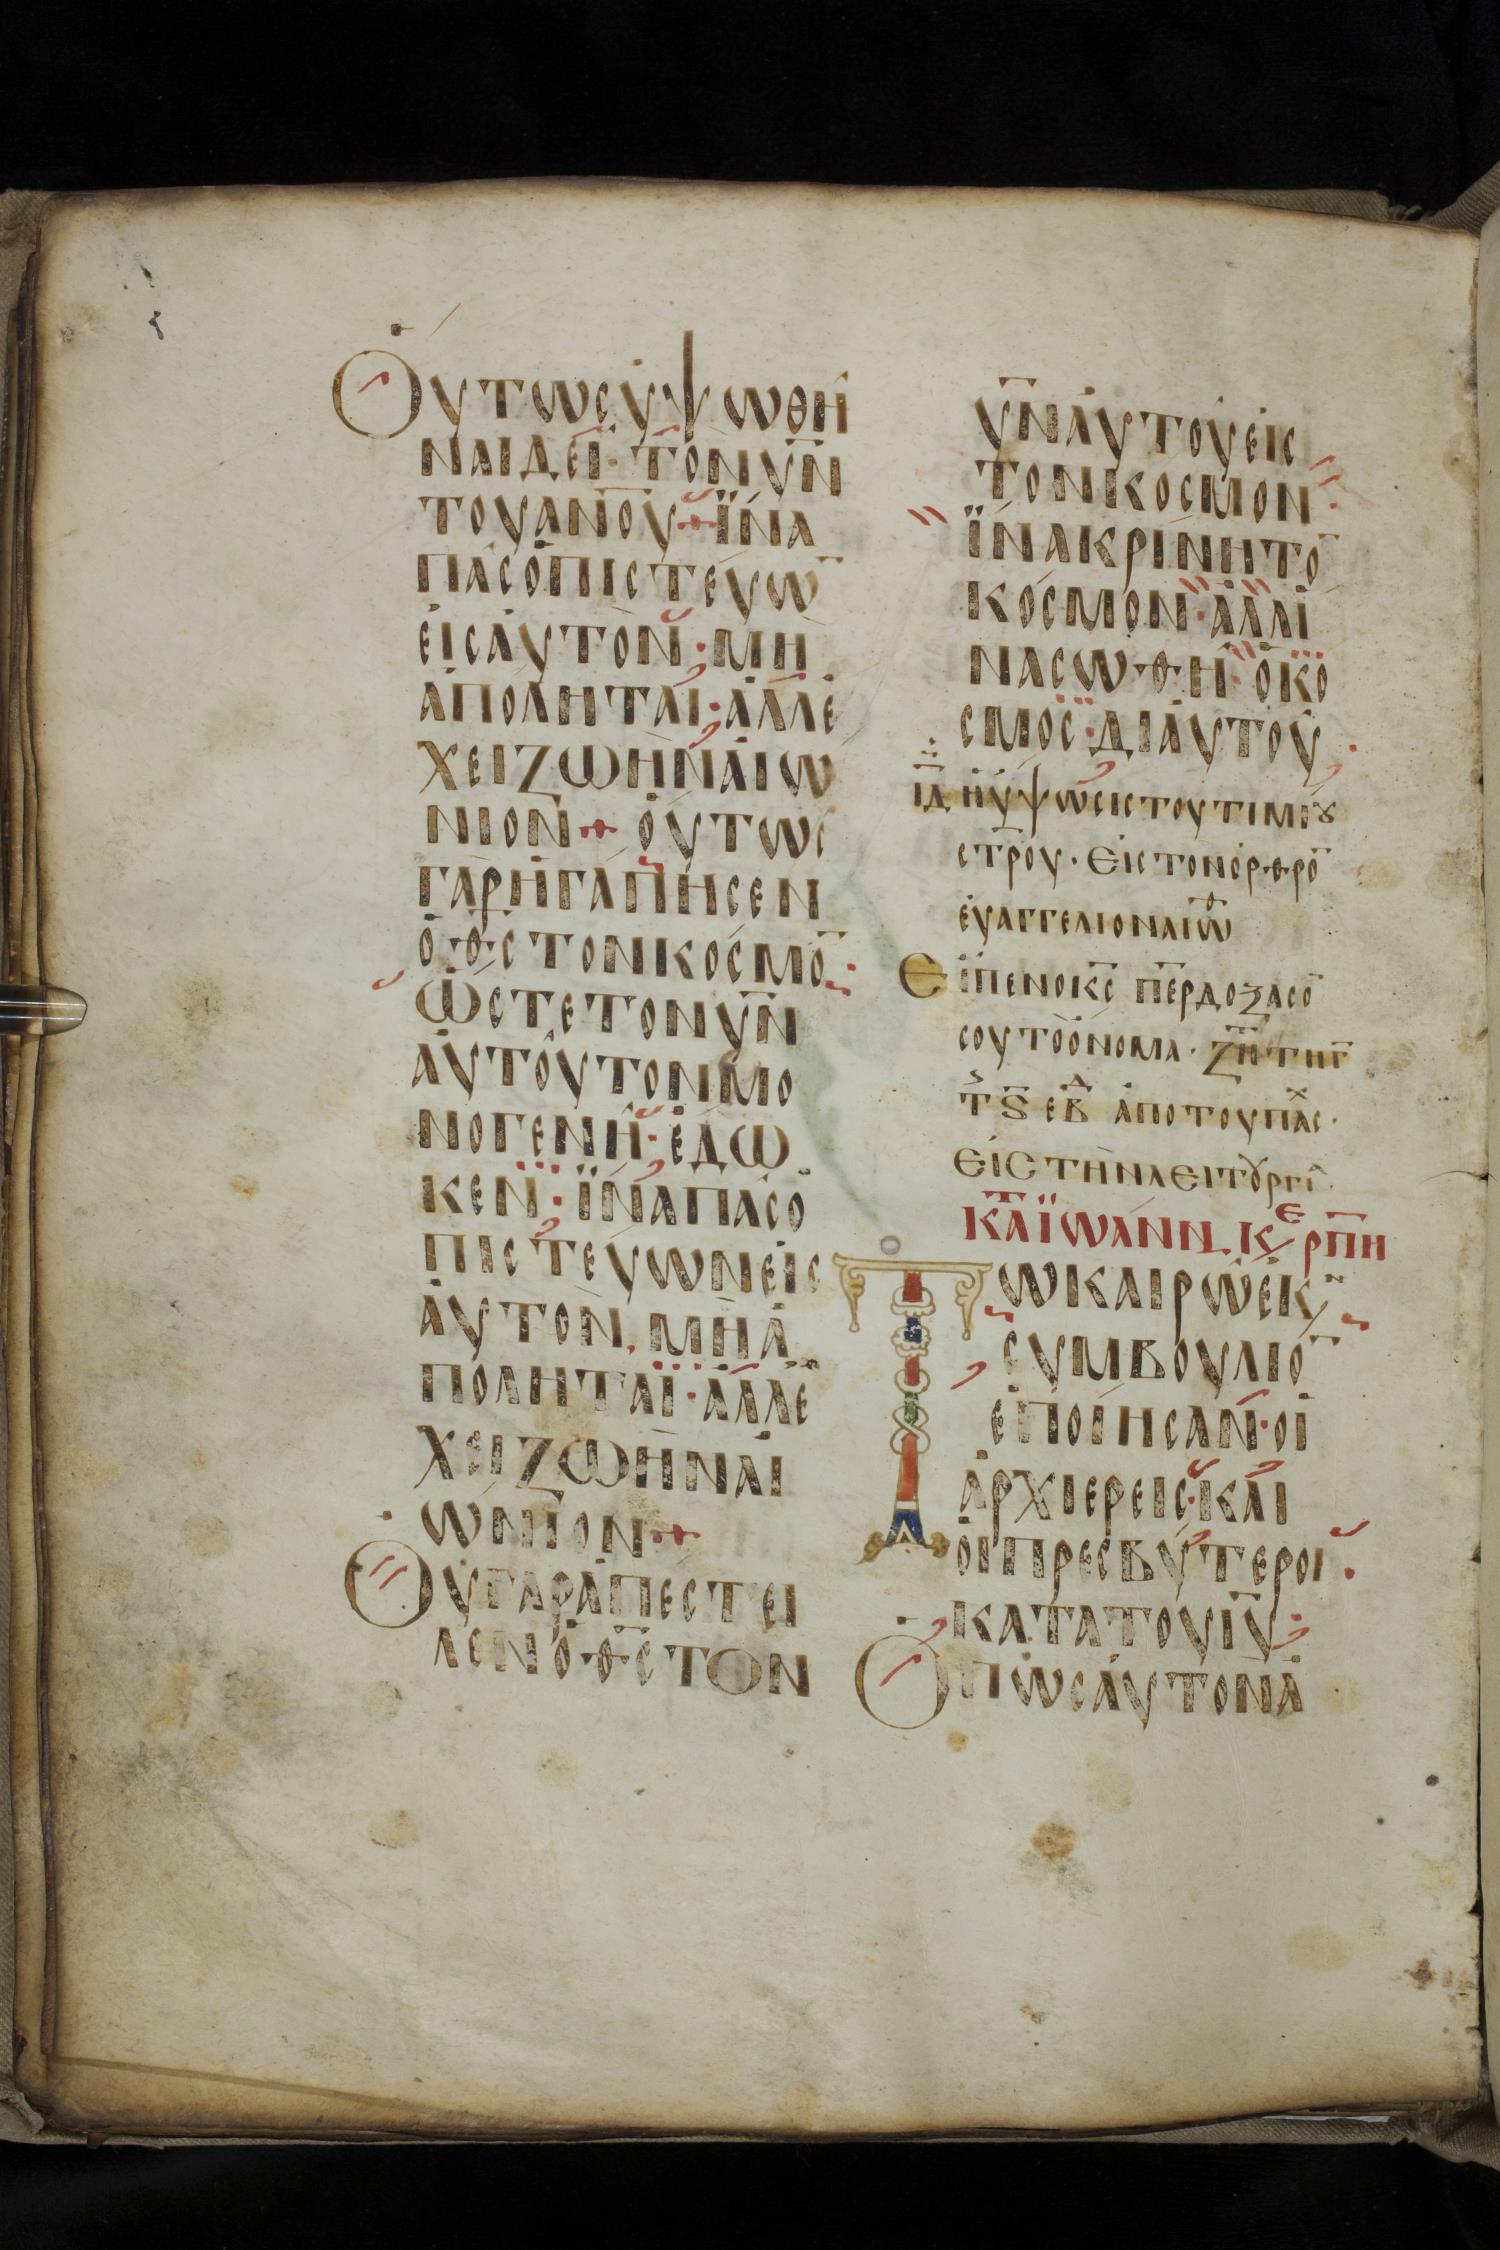 ΟΥΤΩϹΥΨΩΘΗ
ΝΑΙΔΕΙ· ΤΟΝΥ̅Ν̅
ΤΟΥΑΝ̅Ο̅Υ̅+ΪΝΑ
ΠΑϹΟΠΙϹΤΕΥΩ̅
ΕΙϹΑΥΤΟΝ·ΜΗ
ΑΠΟΛΗΤΑΙ·ΑΛΛΕ
ΧΕΙΖΩΗΝΑΙΩ
ΝΙΟΝ+ΟΥΤΩϹ
ΓΑΡΗΓΑΠΗϹΕΝ
ΟΘ̅Ϲ̅ΤΟΝΚΟϹΜΟ̅:
ΩϹΤΕΤΟΝΥ̅Ν̅
ΑΥΤΟΥΤΟΝΜΟ
ΝΟΓΕΝΗ·ΕΔΩ
ΚΕΝ· ΪΝΑΠΑϹΟ
ΠΙϹΤΕΥΩΝΕΙϹ
ΑΥΤΟΝ.ΜΗΑ
ΠΟΛΗΤΑΙ·ΑΛΛΕ
ΧΕΙΖΩΗΝΑΙ
ΩΝΙΟΝ+
ΟΥΓΑΡΑΠΕϹΤΕΙ
ΛΕΝΟΘ̅Ϲ̅ΤΟΝ
Υ̅Ν̅ΑΥΤΟΥΕΙϹ
ΤΟΝΚΟϹΜΟΝ·
ΪΝΑΚΡΙΝΗΤΟ̅
ΚΟϹΜΟΝ·ΑΛΛΙ
ΝΑϹΩΘΗ·ΟΚΟ
ϹΜΟϹ·ΔΙΑΥΤΟΥ·
ΙΔ̅ ΗΥΨΩϹΙϹΤΟΥΤΙΜΙȢ
ϹΤ̅ΡΟΥ· ΕΙϹΤΟΝΟΡΘΡΟ̅
ΕΥΑΓΓΕΛΙΟΝΑΙΩ
ΕΙΠΕΝΟΚ̅Ϲ̅ Π̅ΕΡΔΟΞΑϹΟ̅
ϹΟΥΤΟΟΝΟΜΑ· ΖΗΤΗΓ̅
Τ̅Ϛ̅ ΕΒΔ ΑΠΟΤΟΥΠΑϹΧ·
ΕΙϹΤΗΝΛΕΙΤȢΡΓΙ
ΚΑΤ̅ΪΩΑΝΝ. Κ̸Ε ΡΠ̅Η
ΤΩΚΑΙΡΩΕΚ̸Ν
ϹΥΜΒΟΥΛΙΟ̅
ΕΠΟΙΗϹΑΝ·ΟΙ
ΑΡΧΙΕΡΕΙϹ·ΚΑΙ
ΟΙΠΡΕϹΒΥΤΕΡΟΙ·
ΚΑΤΑΤΟΥΙ̅Υ̅:
ΟΠΩϹΑΥΤΟΝΑ